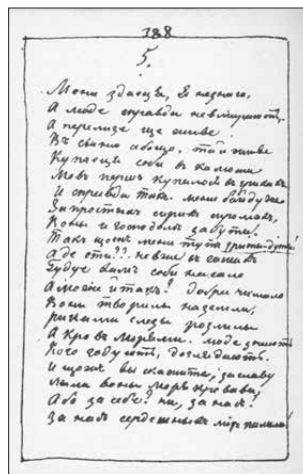 188
5.
Мени здаєця, я незнаю,
А люде справди невмирають,
А перелизе ще живе
Въ свыню абощо, та й живе
Купаєця соби въ калюжи
Мовъ першъ купалось въ грихахъ.
И справди такъ. мени байдуже
За простыхъ сирихъ сиромахъ,
Воны и Господомъ забути.
Такъ щожъ мени тутъ
А де оти?.. невже въ сажахъ
Годує хамъ соби на сало
А може й такъ! добра чимало
Воны творилы на земли,
риками слёзы розлилы
А кровъ морями. люде знають
Кого годують, доглядають.
И щожъ вы скажите, за славу
лылы воны моря кровавы
Або за себе? ни, за насъ!
За насъ сердешныхъ миръ палылы!